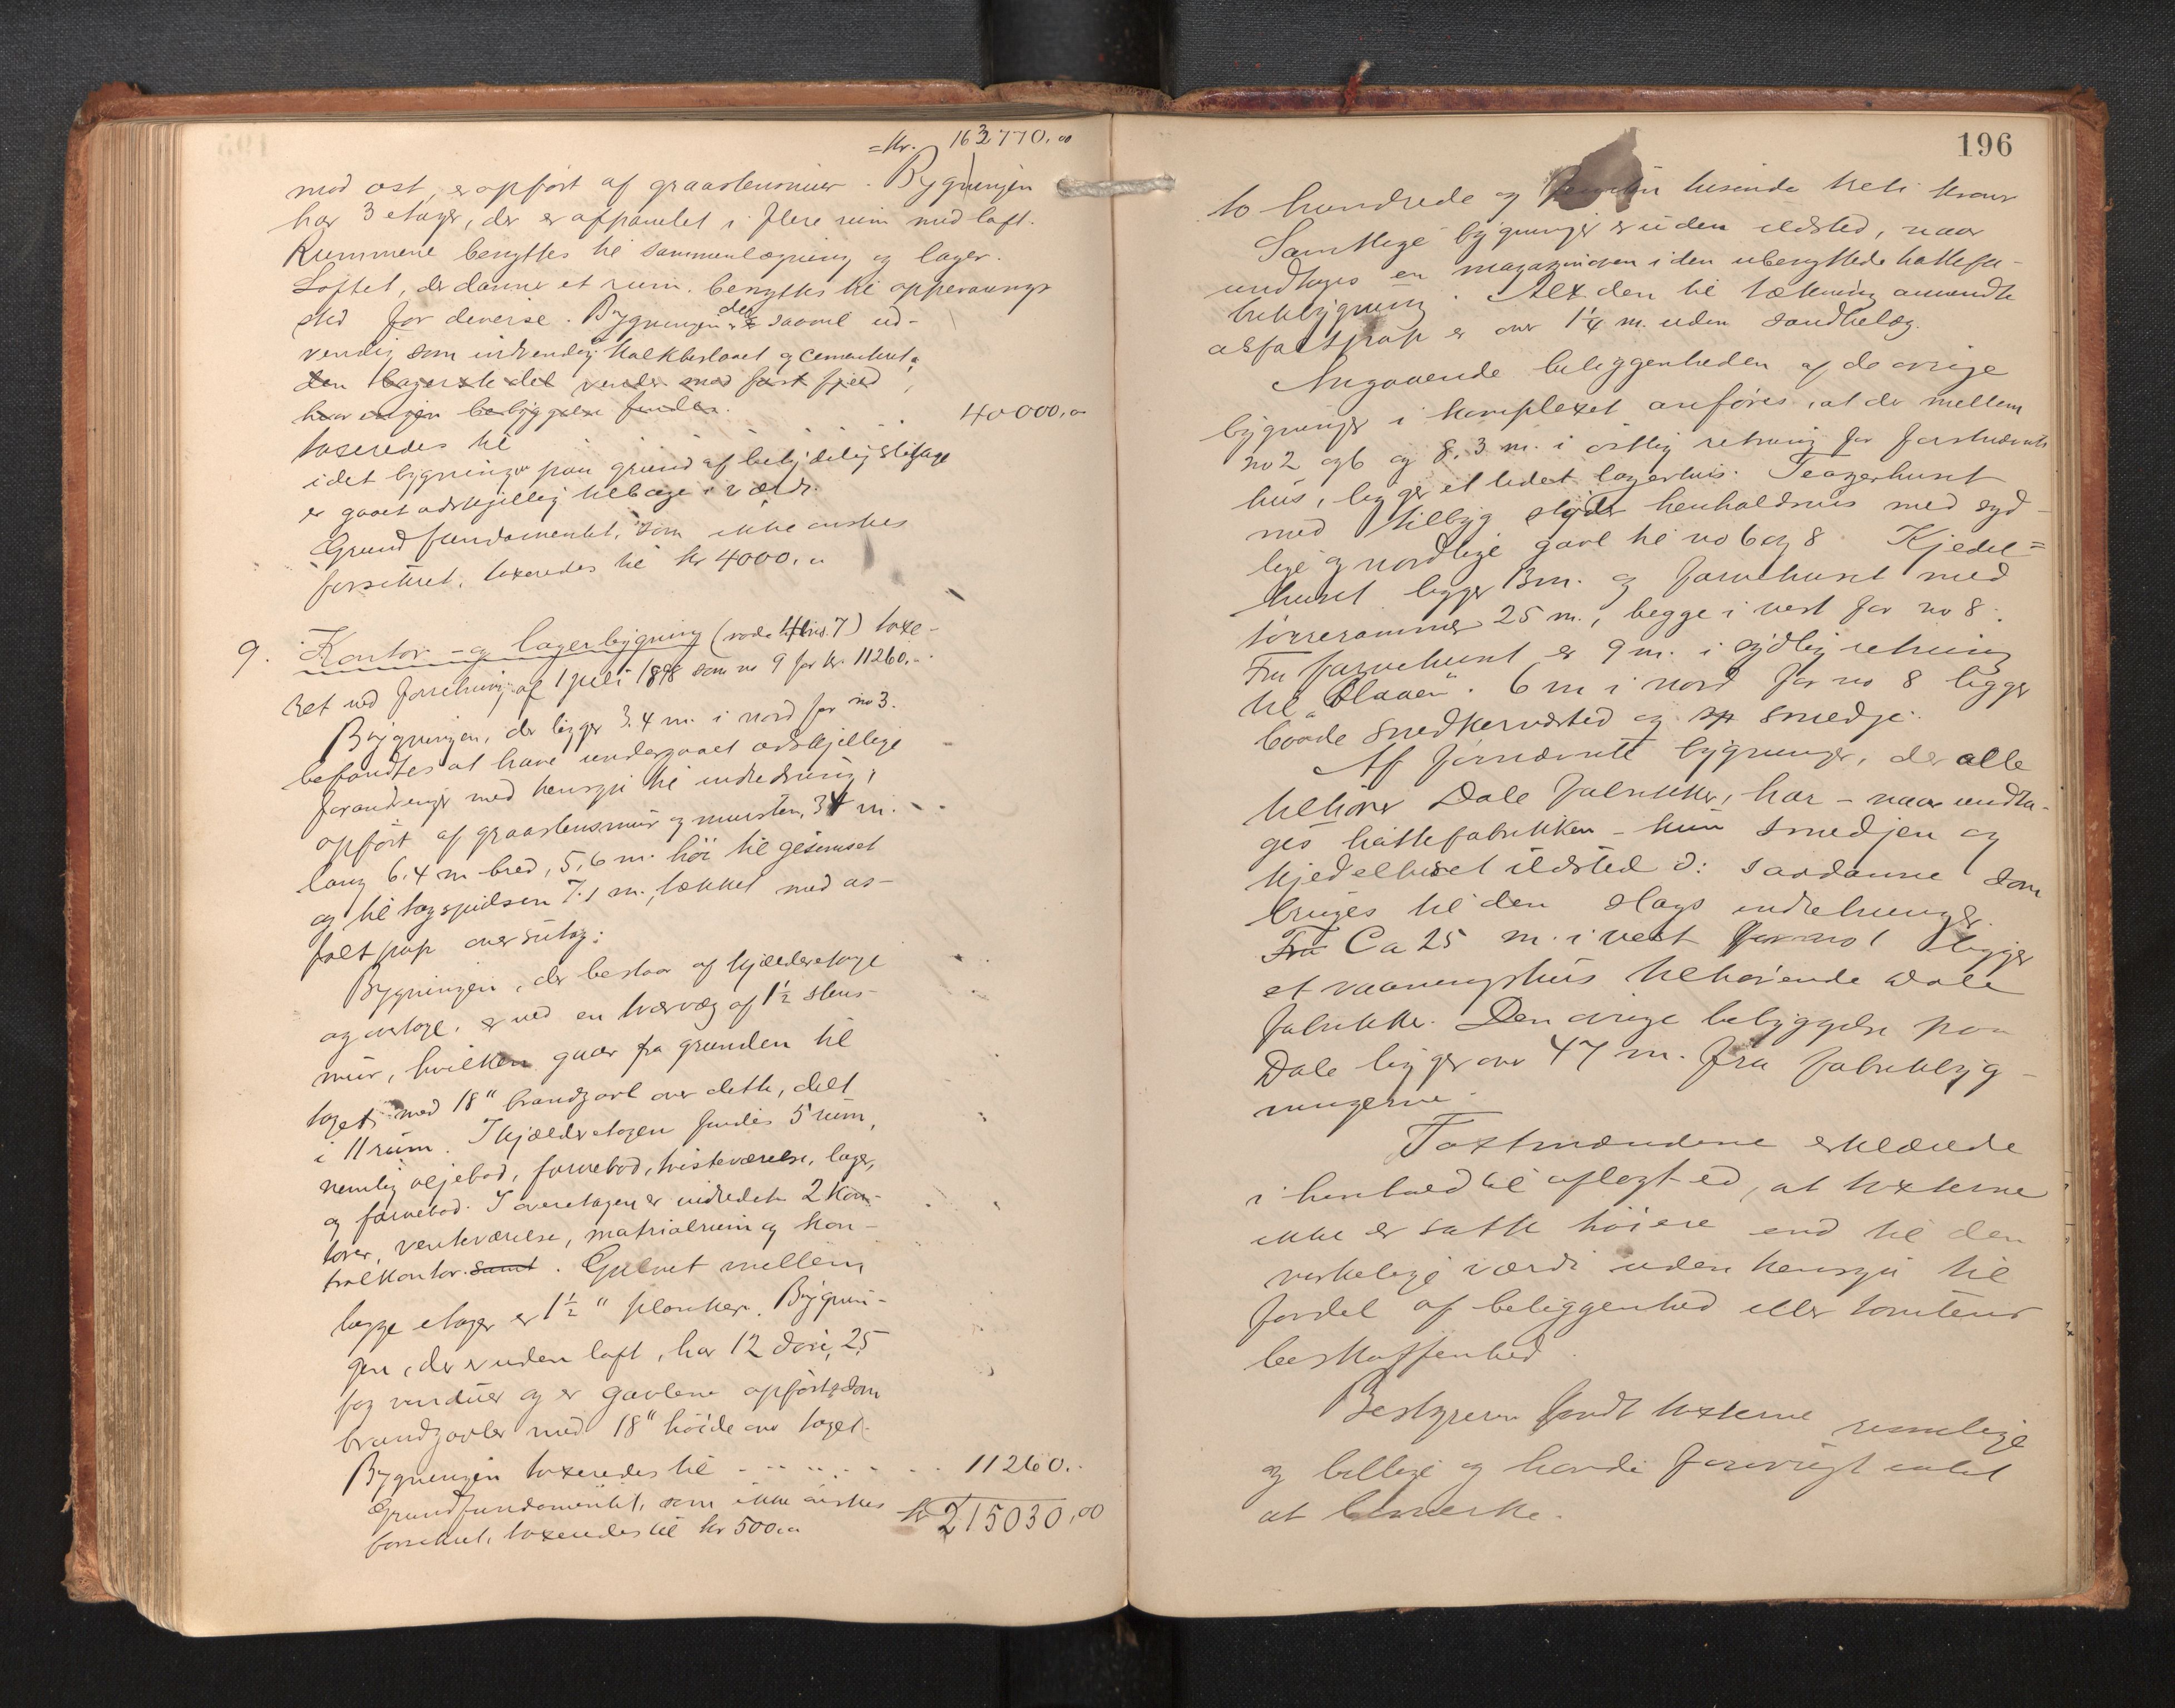 = Kr. 163770.00
mod øst, er opført af graastensmur. Bygningen
har 3 etager, der er afpanelet i flere rum med loft.
Rummene benyttes til sammenlægning og lager.
Loftet, der danner et rum, benyttes til opbevarings
sted for diverse. Bygningen, der er saavel ud-
vendig som indvendig kalkbeslaaet og cementeret,
den bagerste del vender mod fast fjeld,
hvor ingen bebyggelse findes.
taxeredes til . . . 40000,00
idet bygningen paa grund af betydelig slitage
er gaaet adskjellig tilbage i værdi.
Grundfundamentet, som ikke ønskes
forsikret, taxeredes til kr 4000.00
9. Kontor- og lagerbygning (rode 4 no. 7) taxe-
ret ved forretning af 1 juli 1898 som no 9 for kr. 11260.-
Bygningen, der ligger 3.4 m. i nord for no 3.
befandtes at have undergaaet adskjellige
forandringer med hensyn til indredning,
opført af graastensmur og mursten, 34 m.
lang 6.4 m bred, 5,6 m. høi til gesimset
og til tagspidsen 7.1 m., tækket med as-
faltpap over sutag;
Bygningen, der bestaar af kjælderetage
og overetage, er ved en tværvæg af 1½ stens
mur, hvilken gaar fra grunden til
taget med 18" brandgavl over dette, delt
i 11 rum. I kjælderetagen findes 5 rum,
nemlig oljebod, farvebod, tvisteværelse, lager,
og farvebod. I overetagen er indredet 2 kon-
torer, venteværelse, matrialrum og kon-
trolkontor samt. Gulvet mellem
begge etager er 1½" planker. Bygnin-
gen, der er uden loft, har 12 døre, 25
fag vinduer og er gavlene opført som
brandgavler med 18" høide over taget.
Bygningen taxeredes til . . . . . . 11260.-
Grundfundamentet, som ikke ønskes kr 215030,00
forsikret, taxeredes til kr 500.00
196
to hundrede og femten tusinde treti kroner
Samtlige bygninger er uden ildsted, naar
undtages en magazinovn i den ubenyttede hattefa-
brikbygning. Al den til tækning anvendte
asfaltpap er over 1¼ m. uden sandbelæg.
Angaaende beliggenheden af de øvrige
bygninger i komplexet anføres, at der mellem
no 2 og 6 og 8, 3 m. i østlig retning for førstnævnte
hus, ligger et lidet lagerhus. Teagerhuset
med tilbyg støder henholdsvis med syd-
lige og nordlige gavl til no 6 og 8. Kjedel=
huset ligger 13 m. og farvehuset med
tørrerammer 25 m., begge i vest for no 8.
Fra farvehuset er 9 m. i sydlig retning
til "Blaaen". 6 m i nord for no 8 ligger
baade snedkerværksted og sp smedje.
Af fornævnte bygninger, der alle
tilhører Dale fabrikker, har - naar undta-
ges hattefabrikken - kun smedjen og
kjedelhuset ildsted ɔ: saadanne som
bruges til den slags indretninger.
Fra Ca 25 m. i vest for no 1 ligger
et vaaningshus tilhørende Dale
fabrikker. Den øvrige bebyggelse paa
Dale ligger over 47 m. fra fabrikbyg-
ningerne.
Taxtmændene erklærede
i henhold til aflagt ed, at taxterne
ikke er satte høiere end til den
virkelige værdi uden hensyn til
fordel af beliggenhed eller tomtens
beskaffenhed.
Bestyreren fandt taxterne rimelige
og billige og havde forøvrigt intet
at bemerke.